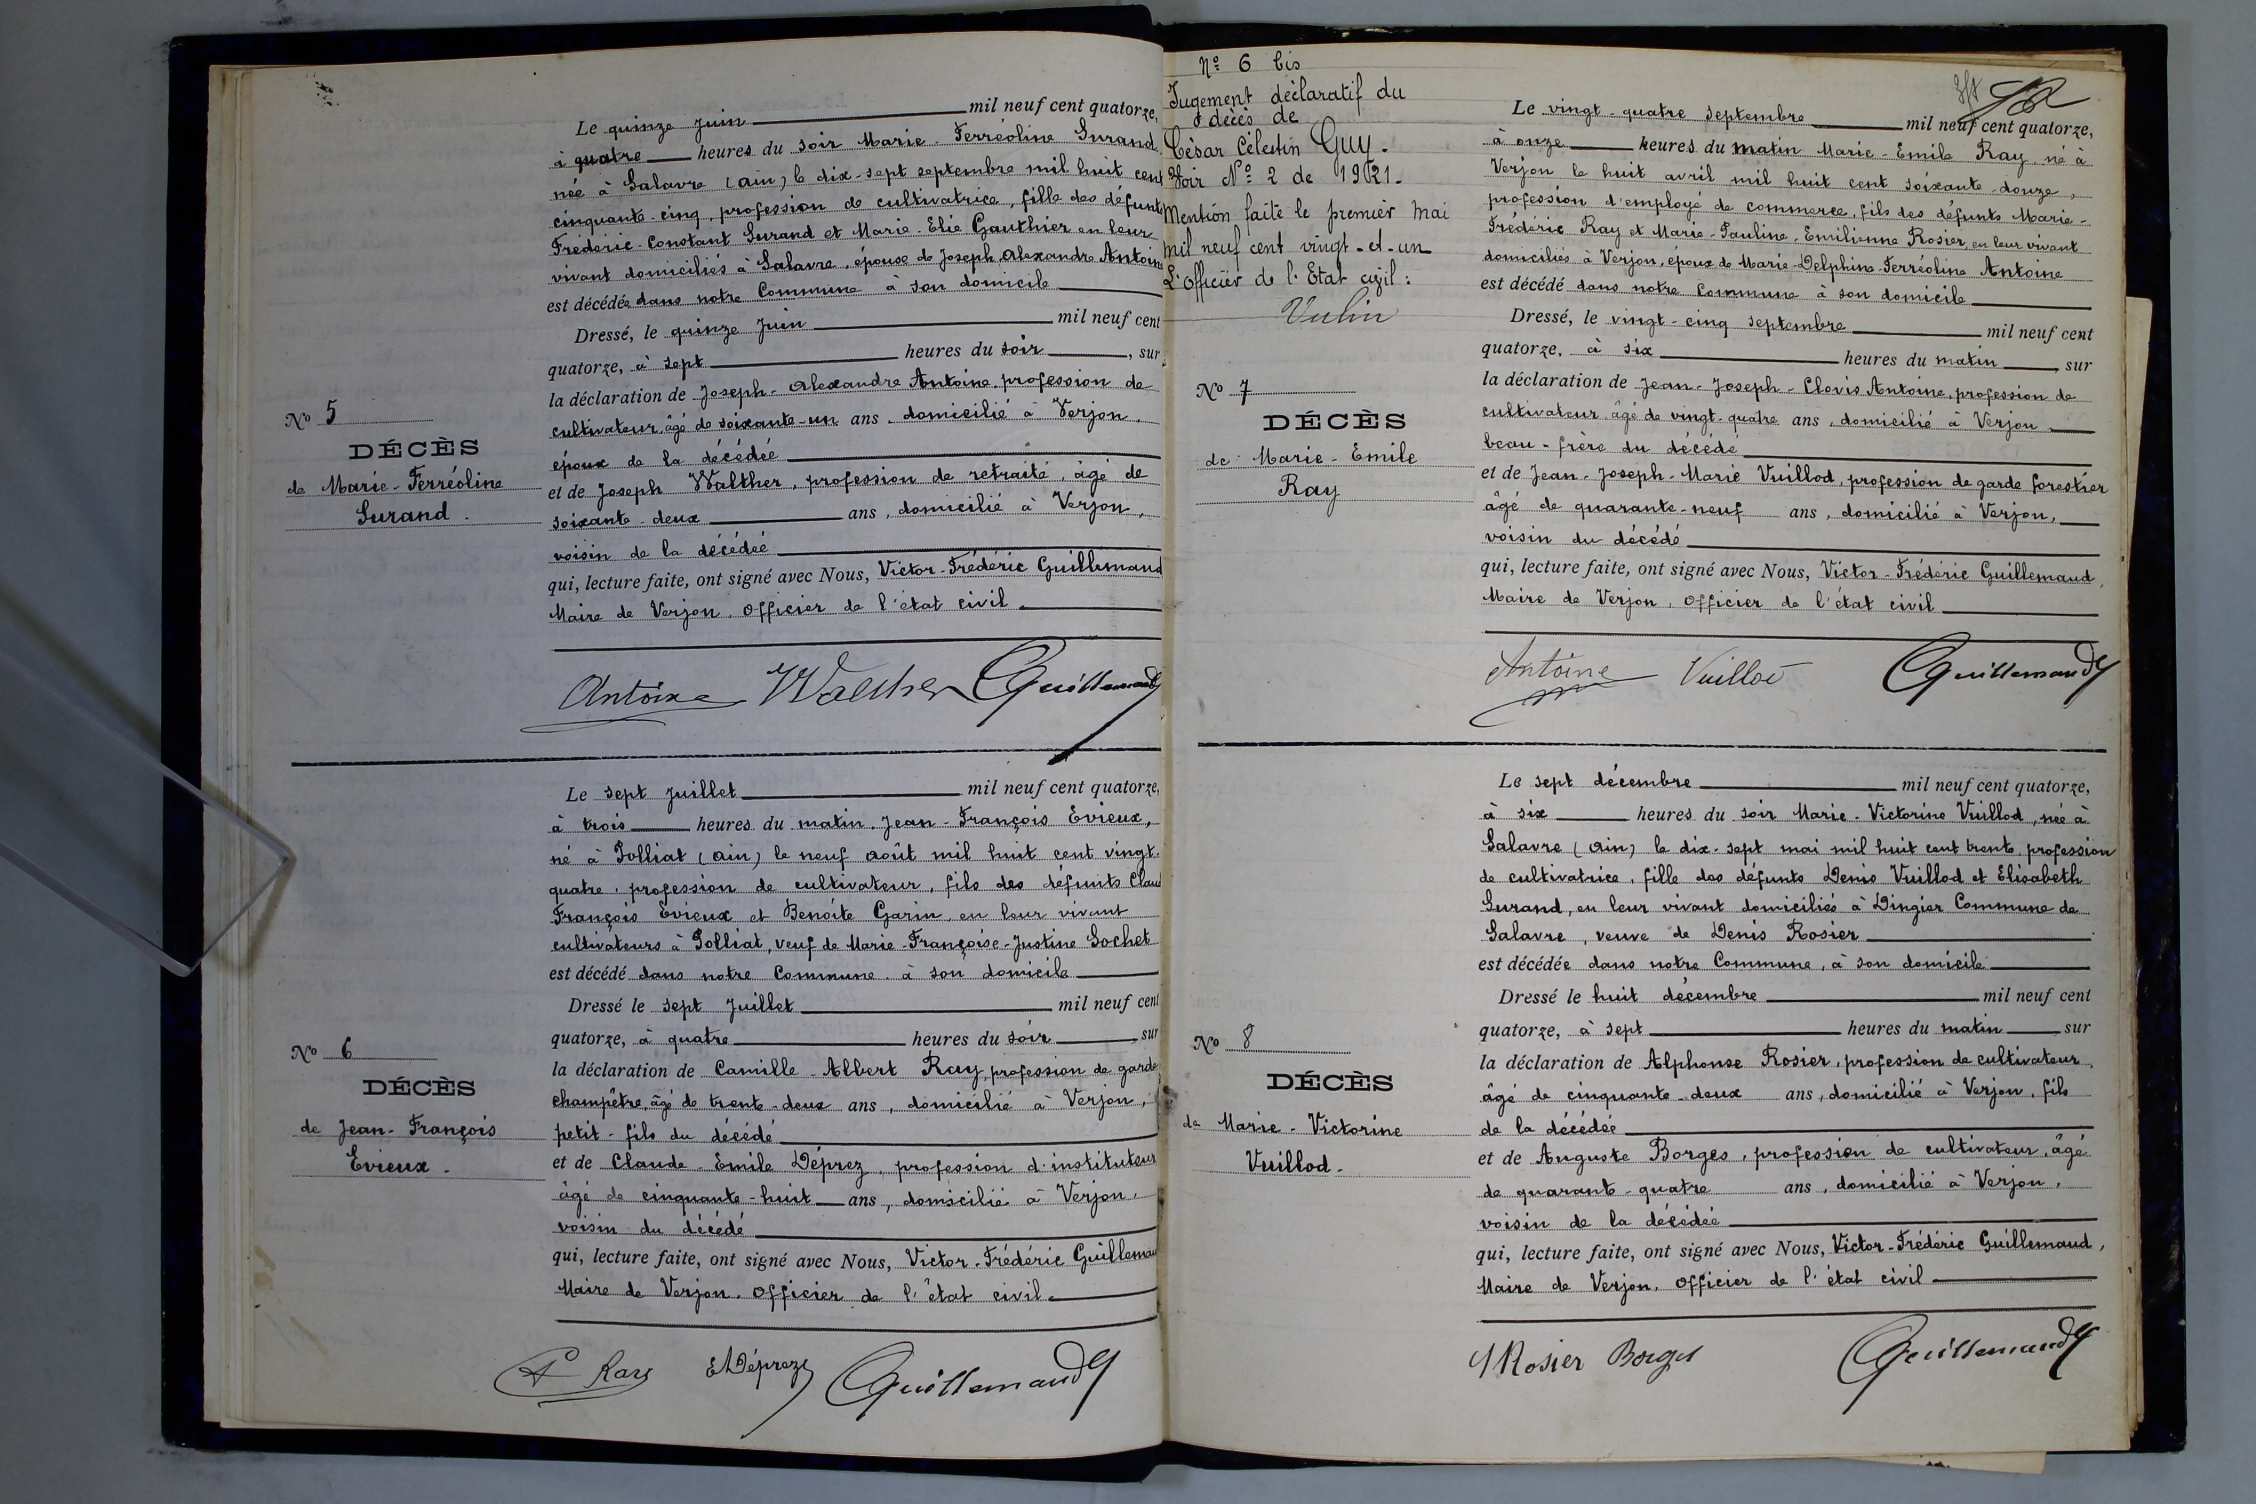 Le quinze juin mil neuf cent quatorze,
à quatre heures du soir Marie-Ferréoline Surand
née à Salavre (Ain) le dix-sept septembre mil huit cent
cinquante-cinq, profession de cultivatrice, fille des défunts
Fréderic-Constant Surand et Marie-Elie Gauthier en leur
vivant domiciliés à Salavre, épouse de Joseph Alexandre Antoine
est décédée dans notre Commune à son domicile
Dressé, le quinze juin mil neuf cent
quatorze, à sept heures du soir, sur
la déclaration de Joseph-Alexandre Antoine, profession de
cultivateur, âgé de soixante-un ans, domicilié à Verjon,
époux de la décédée
et de Joseph Walther, profession de retraité, âgé de
soixante-deux ans, domicilié à Verjon,
voisin de la décédée
qui, lecture faite, ont signé avec Nous, Victor-Frédéric Guillemaud
Maire de Verjon, officier de l'état civil
No 5
DÉCÈS
de Marie-Ferréoline
Surand.
Antoine Walther Guillemaud
Le sept juillet mil neuf cent quatorze,
à trois heures du matin, Jean-François Evieux,
né à Polliat (Ain) le neuf août mil huit cent vingt-
quatre, profession de cultivateur, fils des défunts Clau
François Evieux et Benoîte Garin, en leur vivant
cultivateurs à Polliat, veuf de Marie-Françoise-Justine Sochet
est décédé dans notre Commune à son domicile
Dressé le sept juillet mil neuf cent
quatorze, à quatre heures du soir, sur
la déclaration de Camille-Albert Ray, profession de garde
champêtre, âgé de trente-deux ans, domicilié à Verjon,
petit-fils du décédé
et de Claude-Emile Déprez, profession d'instituteur
âgé de cinquante-huit ans, domicilié à Verjon,
voisin du décédé
qui, lecture faite, ont signé avec Nous, Victor-Frédéric Guillemau
Maire de Verjon, officier de l'état civil.
No 6
DÉCÈS
de Jean-François
Evieux.
Ray Déprez Guillemaud
No 6 bis
Jugement déclaratif du
décès de
César Célestin Guy.
Voir No 2 de 1921.
Mention faite le premier Mai
mil neuf cent vingt-et-un
L'officier de l'Etat civil:
Vulin
Le vingt-quatre septembre mil neuf cent quatorze,
à onze heures du matin Marie-Emile Ray né à
Verjon le huit avril mil huit cent soixante-douze,
profession d'employé de commerce, fils des défunts Marie-
Frédéric Ray et Marie-Pauline-Emilienne Rosier, en leur vivant
domiciliés à Verjon, époux de Marie-Delphine-Ferréoline Antoine
est décédé dans notre Commune à son domicile
Dressé, le vingt-cinq septembre mil neuf cent
quatorze, à six heures du matin, sur
la déclaration de Jean-Joseph-Clovis Antoine, profession de
cultivateur, âgé de vingt-quatre ans, domicilié à Verjon
beau-frère du décédé
et de Jean-Joseph-Marie Vuillod, profession de garde forestier
âgé de quarante-neuf ans, domicilié à Verjon,
voisin du décédé
qui, lecture faite, ont signé avec Nous, Victor-Frédéric Guillemaud,
Maire de Verjon, officier de l'état civil
No 7
DÉCÈS
de Marie-Emile
Ray
Antoine Vuillod Guillemaud
Le sept décembre mil neuf cent quatorze,
à six heures du soir Marie-Victorine Vuillod, née à
Salavre (Ain) le dix-sept mai mil huit cent trente, profession
de cultivatrice, fille des défunts Denis Vuillod et Elisabeth
Surand, en leur vivant domiciliés à Dingier Commune de
Salavre, veuve de Denis Rosier
est décédée dans notre Commune, à son domicile
Dressé le huit décembre mil neuf cent
quatorze, à sept heures du matin sur
la déclaration de Alphonse Rosier, profession de cultivateur,
âgé de cinquante-deux ans, domicilié à Verjon, fils
de la décédée
et de Auguste Borges, profession de cultivateur, âgé
de quarante-quatre ans, domicilié à Verjon,
voisin de la décédée
qui, lecture faite, ont signé avec Nous, Victor-Frédéric Guillemaud,
Maire de Verjon, officier de l'état civil
No 8
DÉCÈS
de Marie-Victorine
Vuillod.
Rosier Borges Guillemaud